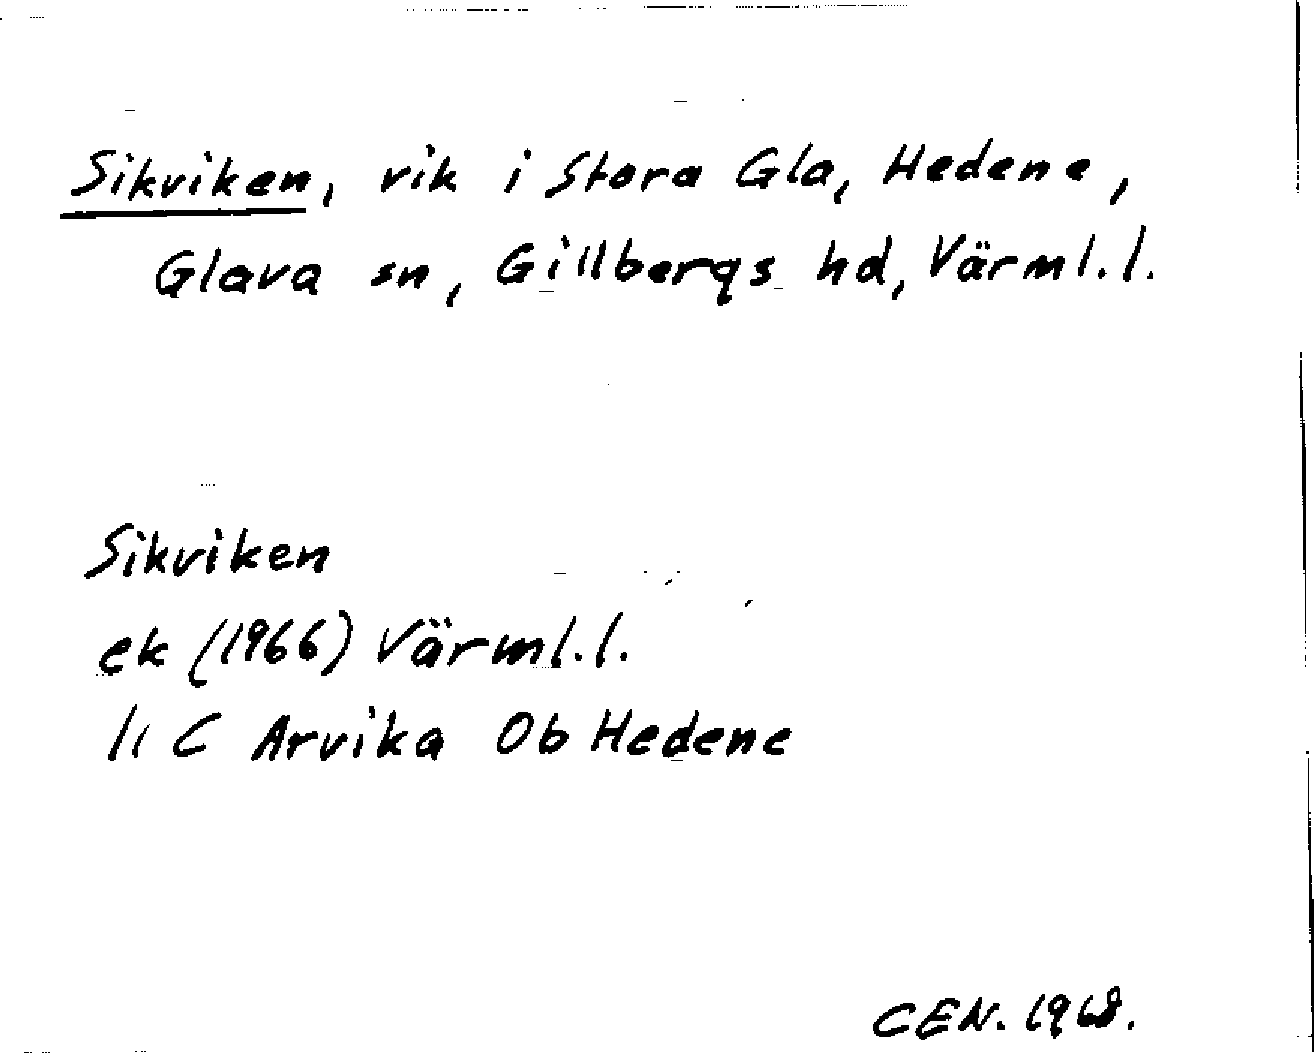 Sikviken, vik i Stora Gla, Hedene,
Glava sn, Gillbergs hd, Värml.l.
Sikviken
ek (1966) Värml.l.
11 C Arvika Ob Hedene
CEN. 1968.